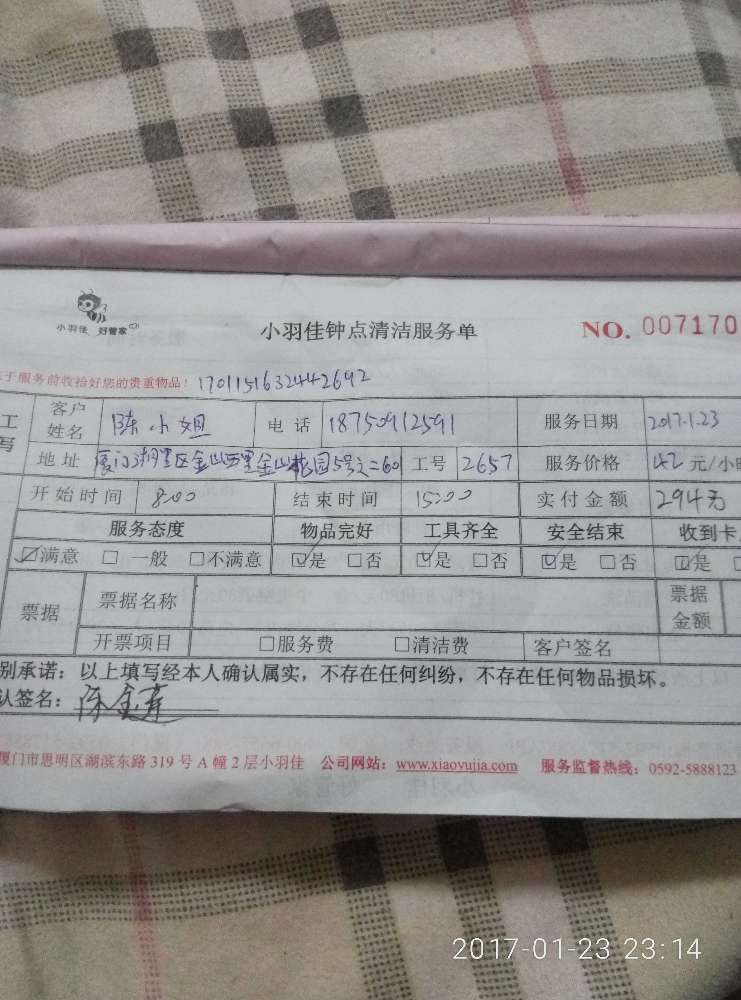 小羽佳 好管家
小羽佳钟点清洁服务单 NO. 007170
于服务前收拾好您的贵重物品! 1701151632442692
工 客户姓名 陈小姐 电话 18750912591 服务日期 2017.1.23
写 地址 厦门湖里区金山西里金山花园5号之二601 工号 2657 服务价格 42 元/小
开始时间 8:00 结束时间 15:00 实付金额 294元
服务态度 物品完好 工具齐全 安全结束 收到卡
☑满意 □一般 □不满意 ☑是 □否 ☑是 □否 ☑是 □否 ☑是
票据 票据名称 票据金额
开票项目 □服务费 □清洁费 客户签名
别承诺:以上填写经本人确认属实,不存在任何纠纷,不存在任何物品损坏。
认签名:陈金
厦门市思明区湖滨东路 319 号 A 幢 2 层小羽佳 公司网站:www.xiaoyujia.com 服务监督热线:0592-5888123
2017-01-23 23:14